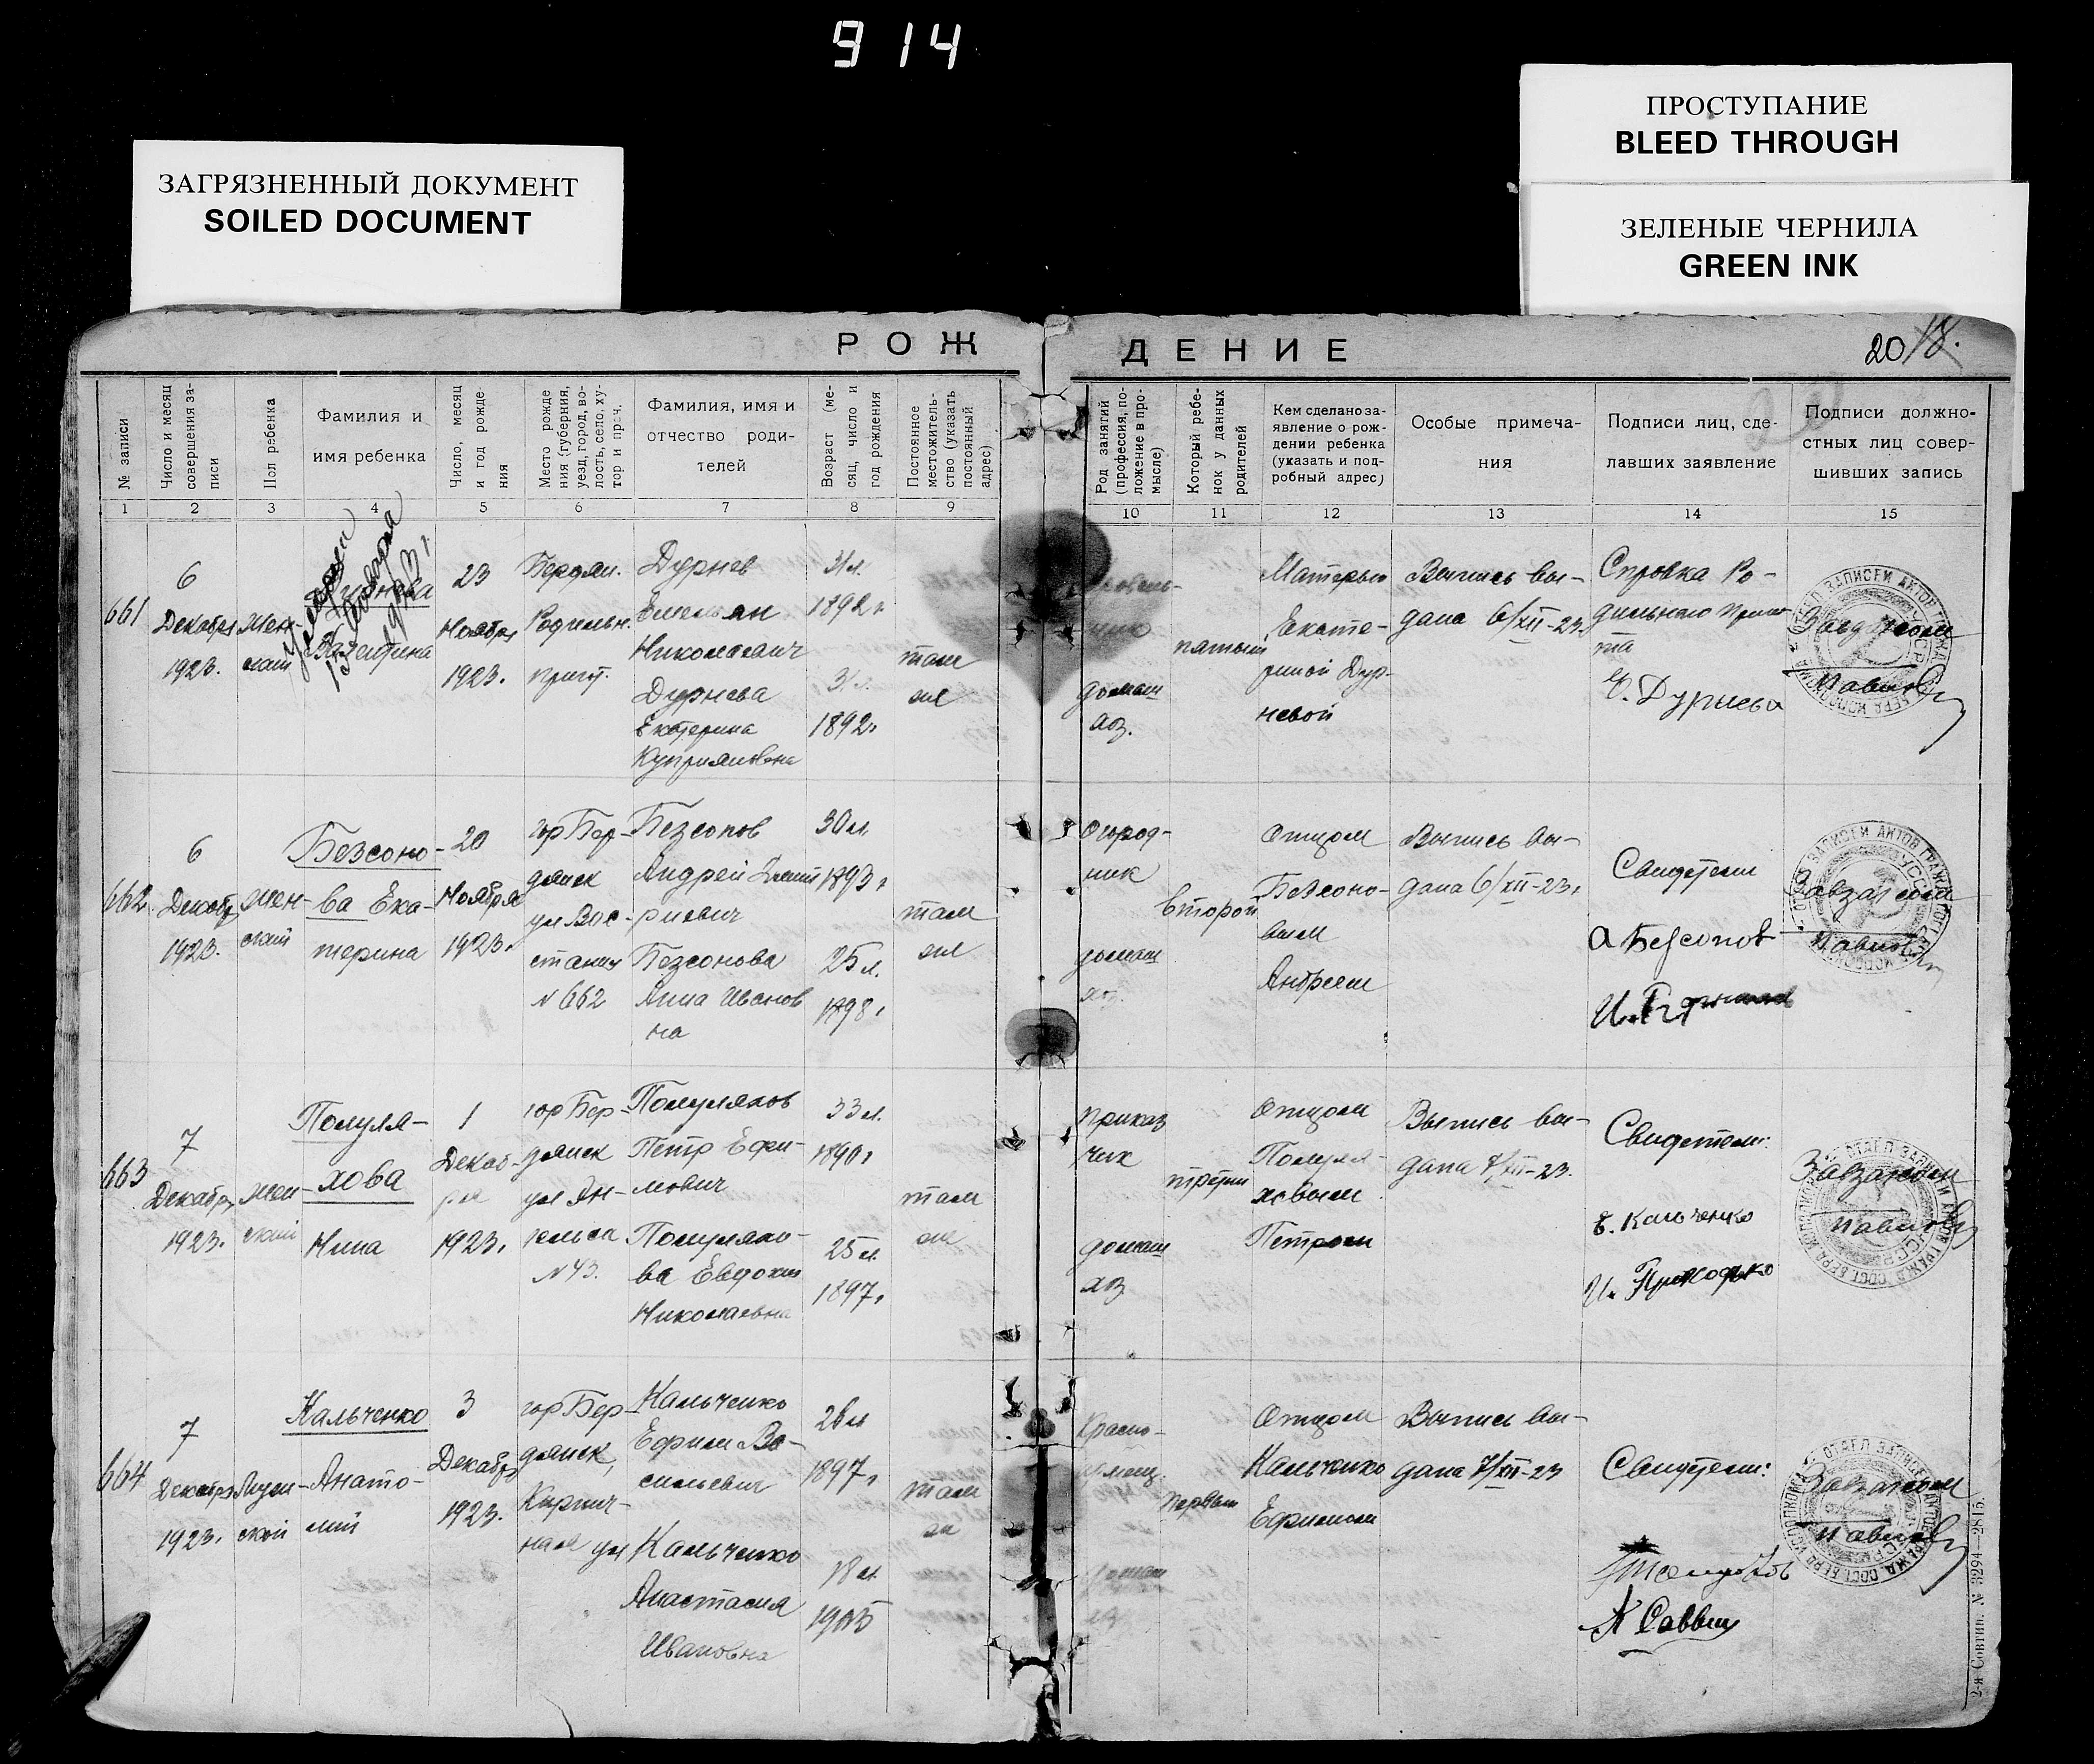 914
ЗАГРЯЗНЕННЫЙ ДОКУМЕНТ
SOILED DOCUMENT
ПРОСТУПАНИЕ
BLEED THROUGH
ЗЕЛЕНЫЕ ЧЕРНИЛА
GREEN INK
РОЖДЕНИЕ
20
№ записи
Число и месяц совершения записи
Пол ребенка
Фамилия и имя ребенка
Число, месяц и год рождения
Место рождения (губерния, уезд, город, волость, село, хутор и проч.
Фамилия, имя и отчество родителей
Возраст (месяц, число и год рождения
Постоянное местожительство (указать постоянный адрес)
Род занятий (профессия, положение в промысле)
Который ребенок у данных родителей
Кем сделано заявление о рождении ребенка (указать и подробный адрес)
Особые примечания
Подписи лиц, сделавших заявление
Подписи должностных лиц совершивших запись
1 2 3 4 5 6 7 8 9 10 11 12 13 14 15
661
6
Декабря
1923.
Жен-
ский
23
Ноября
1923.
Бердян.
Родильн.
приют.
Дурнев
Емельян
Николаевич
Дурнева
Екатерина
Куприяновна
31 л.
1892 г.
1892 г.
там
же
домаш
хоз.
пятый
Матерью
Екате-
риной Дур-
невой
Выпись вы-
дана 6/XII-23.
Справка Ро-
дильного Прию-
та
Е. Дурнева
Завзагсом
Павлов
662
6
Декабр
1923.
Жен-
ский
Безсоно-
ва Ека-
терина
20
Ноября
1923.
гор Бер-
дянск
ул Вос-
стания
№ 662
Безсонов
Андрей Дмит
риевич
Безсонова
Анна Иванов
на
30 л.
1893 г
25 л.
1898 г
там
же
Огород-
ник
домаш
хоз.
второй
Отцом
Безсоно-
вым
Андреем
Выпись вы-
дана 6/XII-23 г
Свидетели
А Безсонов
Завзагсом
Павлов
663
7
Декабр
1923.
Жен-
ский
Полуля-
хова
Нина
1
Декаб-
ря
1923 г
гор Бер-
дянск
ул Эн-
гельса
№ 43.
Полуляхов
Петр Ефи-
мович
Полуляхо-
ва Евдокия
Николаевна
33 л.
1890 г
25 л.
1897 г
там
же
приказ
чик
домаш
хоз
третий
Отцом
Полуля-
ховым
Петром
Выпись вы-
дана 7/XII-23.
Свидетели:
Е. Кальченко
И. Приходько
Завзагсом
Павлов
664
7
Декабря
1923.
Муж-
ской
Кальченко
Анато-
лий
3
Декабр
1923.
гор Бер-
дянск,
Кирпич-
ная ул
Кальченко
Ефим Ва-
сильевич
Кальченко
Анастасия
Ивановна
26 л
1897 г
18 л.
1905
там
же
Красно-
домаш
хоз
первый
Отцом
Кальченко
Ефимом
Выпись вы-
дана 7/XII-23
Свидетели:
Завзагсом
Павлов
2-я Совтип. № 3294—2815.